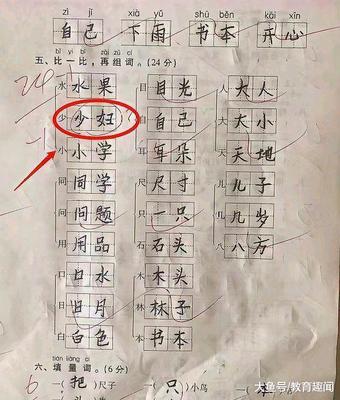 zì jǐ xià yǔ shū běn kāi xīn
自己 下雨 书本 开心
bǐ yì bǐ zài zǔ cí
五、比一比,再组词。(24分)
水 水果 目 目光 人 大人
少 少妇 自 自己 大 大小
小 小学 耳 耳朵 天 天地
同 同学 尺 尺寸 儿 儿子
问 问题 只 一只 几 几岁
用 用品 石 石头 八 八方
口 口水 木 木头
日 日月 林 林子
白 白色 本 书本
tián liàng cí
六、填量词。(6分)
6 一(把)尺子 一(只)小鸟
大鱼号/教育趣闻